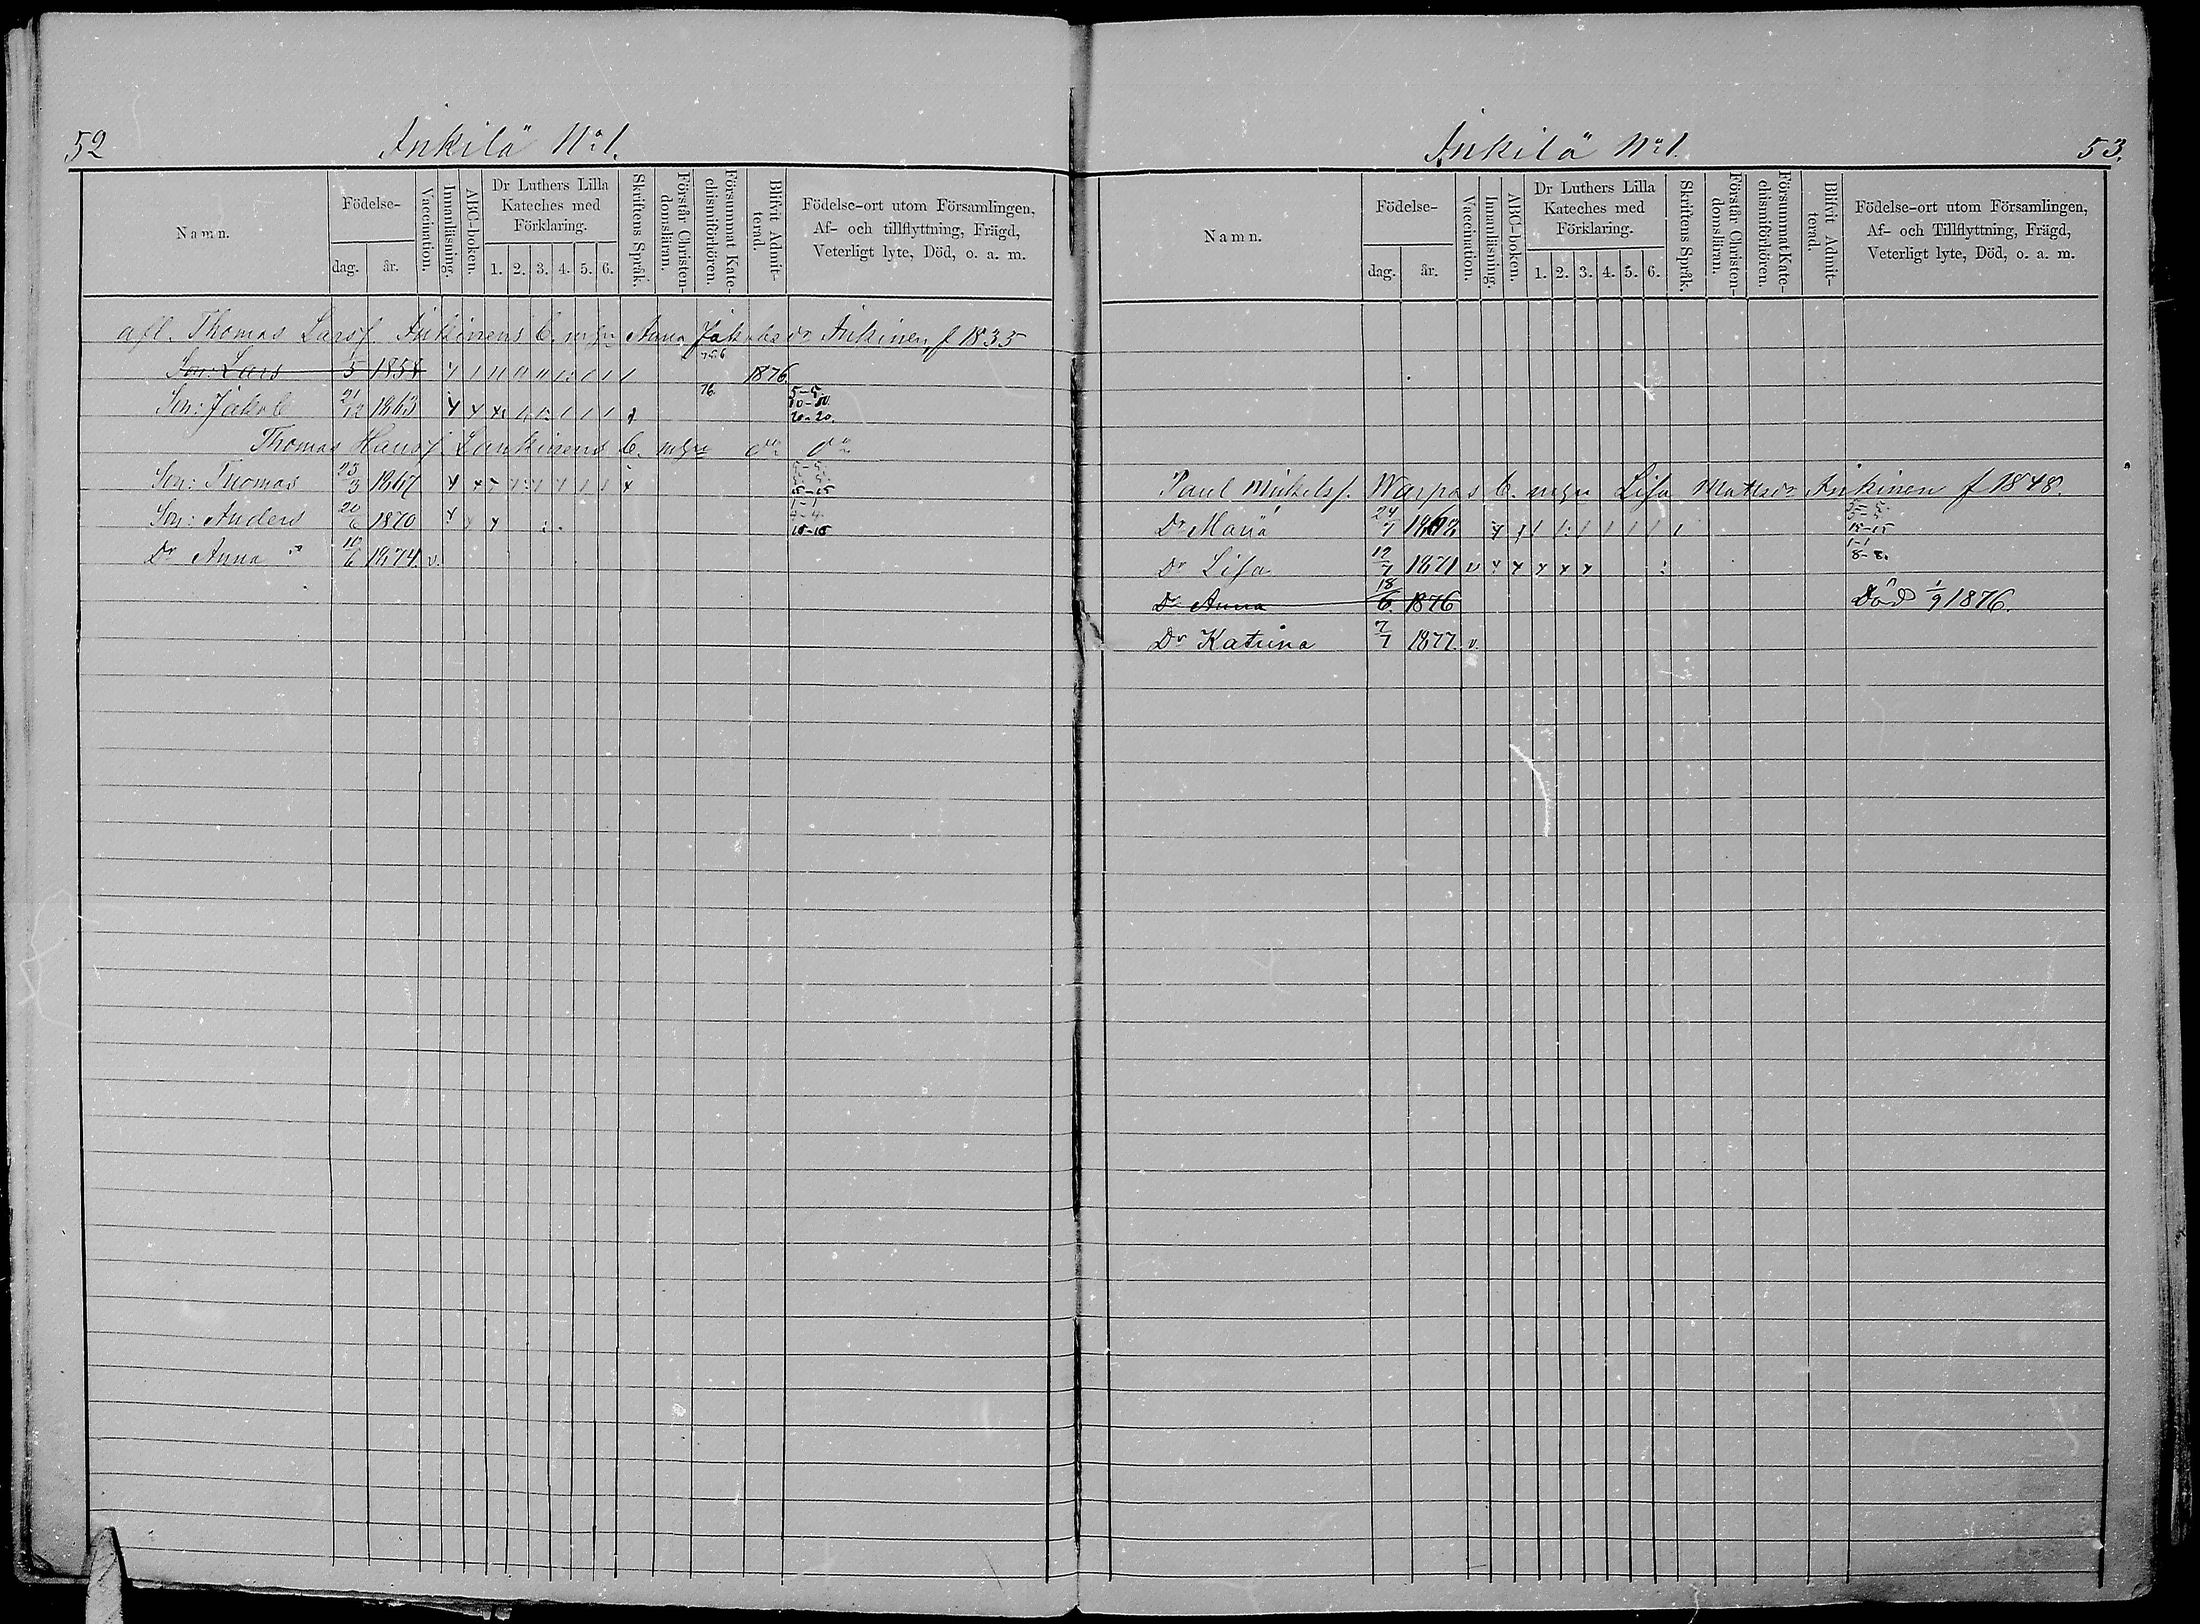 52
Inkilä No 1.
Namn.
Födelse-
dag.
år.
Vaccination.
Innanläsning.
ABC-boken.
Dr Luthers Lilla
Kateches med
Förklaring.
1. 2. 3. 4. 5. 6.
Skriftens Språk.
Förstår Christen-
domsläran.
Försummat Kate-
chismiförhören.
Blifvit Admit-
terad.
Födelse-ort utom Församlingen,
Af- och tillflyttning, Frägd,
Veterligt lyte, Död, o. a. m.
afl. Thomas Larsf. Inkinens b. mgn Anna Jakobsdr Inkinen, f 1835
Son: Lars 1858 1876
Son: Jakob 21/12 1863 76. 5-5 10-10 20-20.
Thomas Hansf. Lankinens b. mgn do do
Son: Thomas 25/3 1867 15-15
Son: Anders 20/6 1870 15-15
Dr Anna 10/6 1874 v.
Inkilä No 1.
53.
Namn.
Födelse-
dag.
år.
Vaccination.
Innanläsning.
ABC-boken.
Dr Luthers Lilla
Kateches med
Förklaring.
1. 2. 3. 4. 5. 6.
Skriftens Språk.
Förstår Christen-
domsläran.
Försummat Kate-
chismiförhören.
Blifvit Admit-
terad.
Födelse-ort utom Församlingen,
Af- och Tillflyttning, Frägd,
Veterligt lyte, Död, o. a. m.
Paul Mickelsf. Warpas b. mgn Lisa Mattsdr Inkinen f 1848.
Dr Maria 24/7 15-15
Dr Lisa 12/7 1871 v 1-1 8-8.
Dr Anna 18/6 1876 Död 1/9 1876.
Dr Katrina 7/7 1877 v.